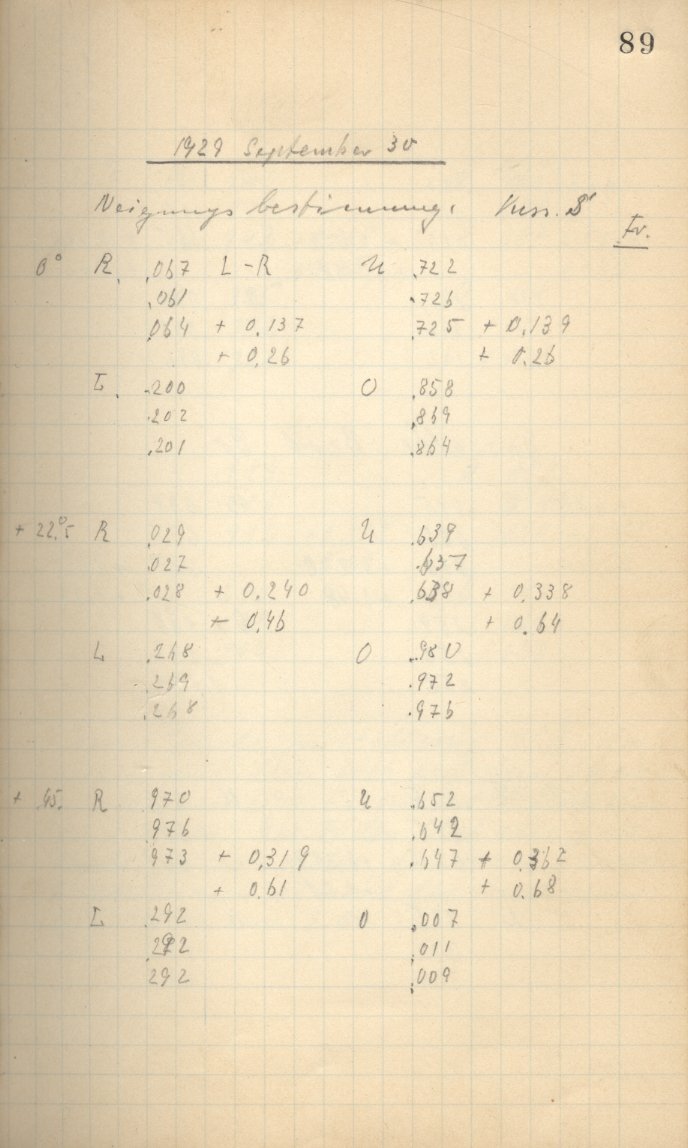 89
1929 September 30
Neigungsbestimmung.
Fr.
0° R. .067 L-R U .722
.061 .726
.064 + 0,137 .725 + 0,139
+ 0,26 + 0.26
L. .200 O .858
.202 .869
.201 .864
+ 22,°5 R .029 U .639
.027 .637
.028 + 0,240 .638 + 0,338
+ 0,46 + 0.64
L .268 O .980
.269 .972
.268 .976
+ 45. R 970 U .652
976 .642
973 + 0,319 .647 + 0,362
+ 0.61 + 0.68
L .292 O .007
292 .011
292 .009